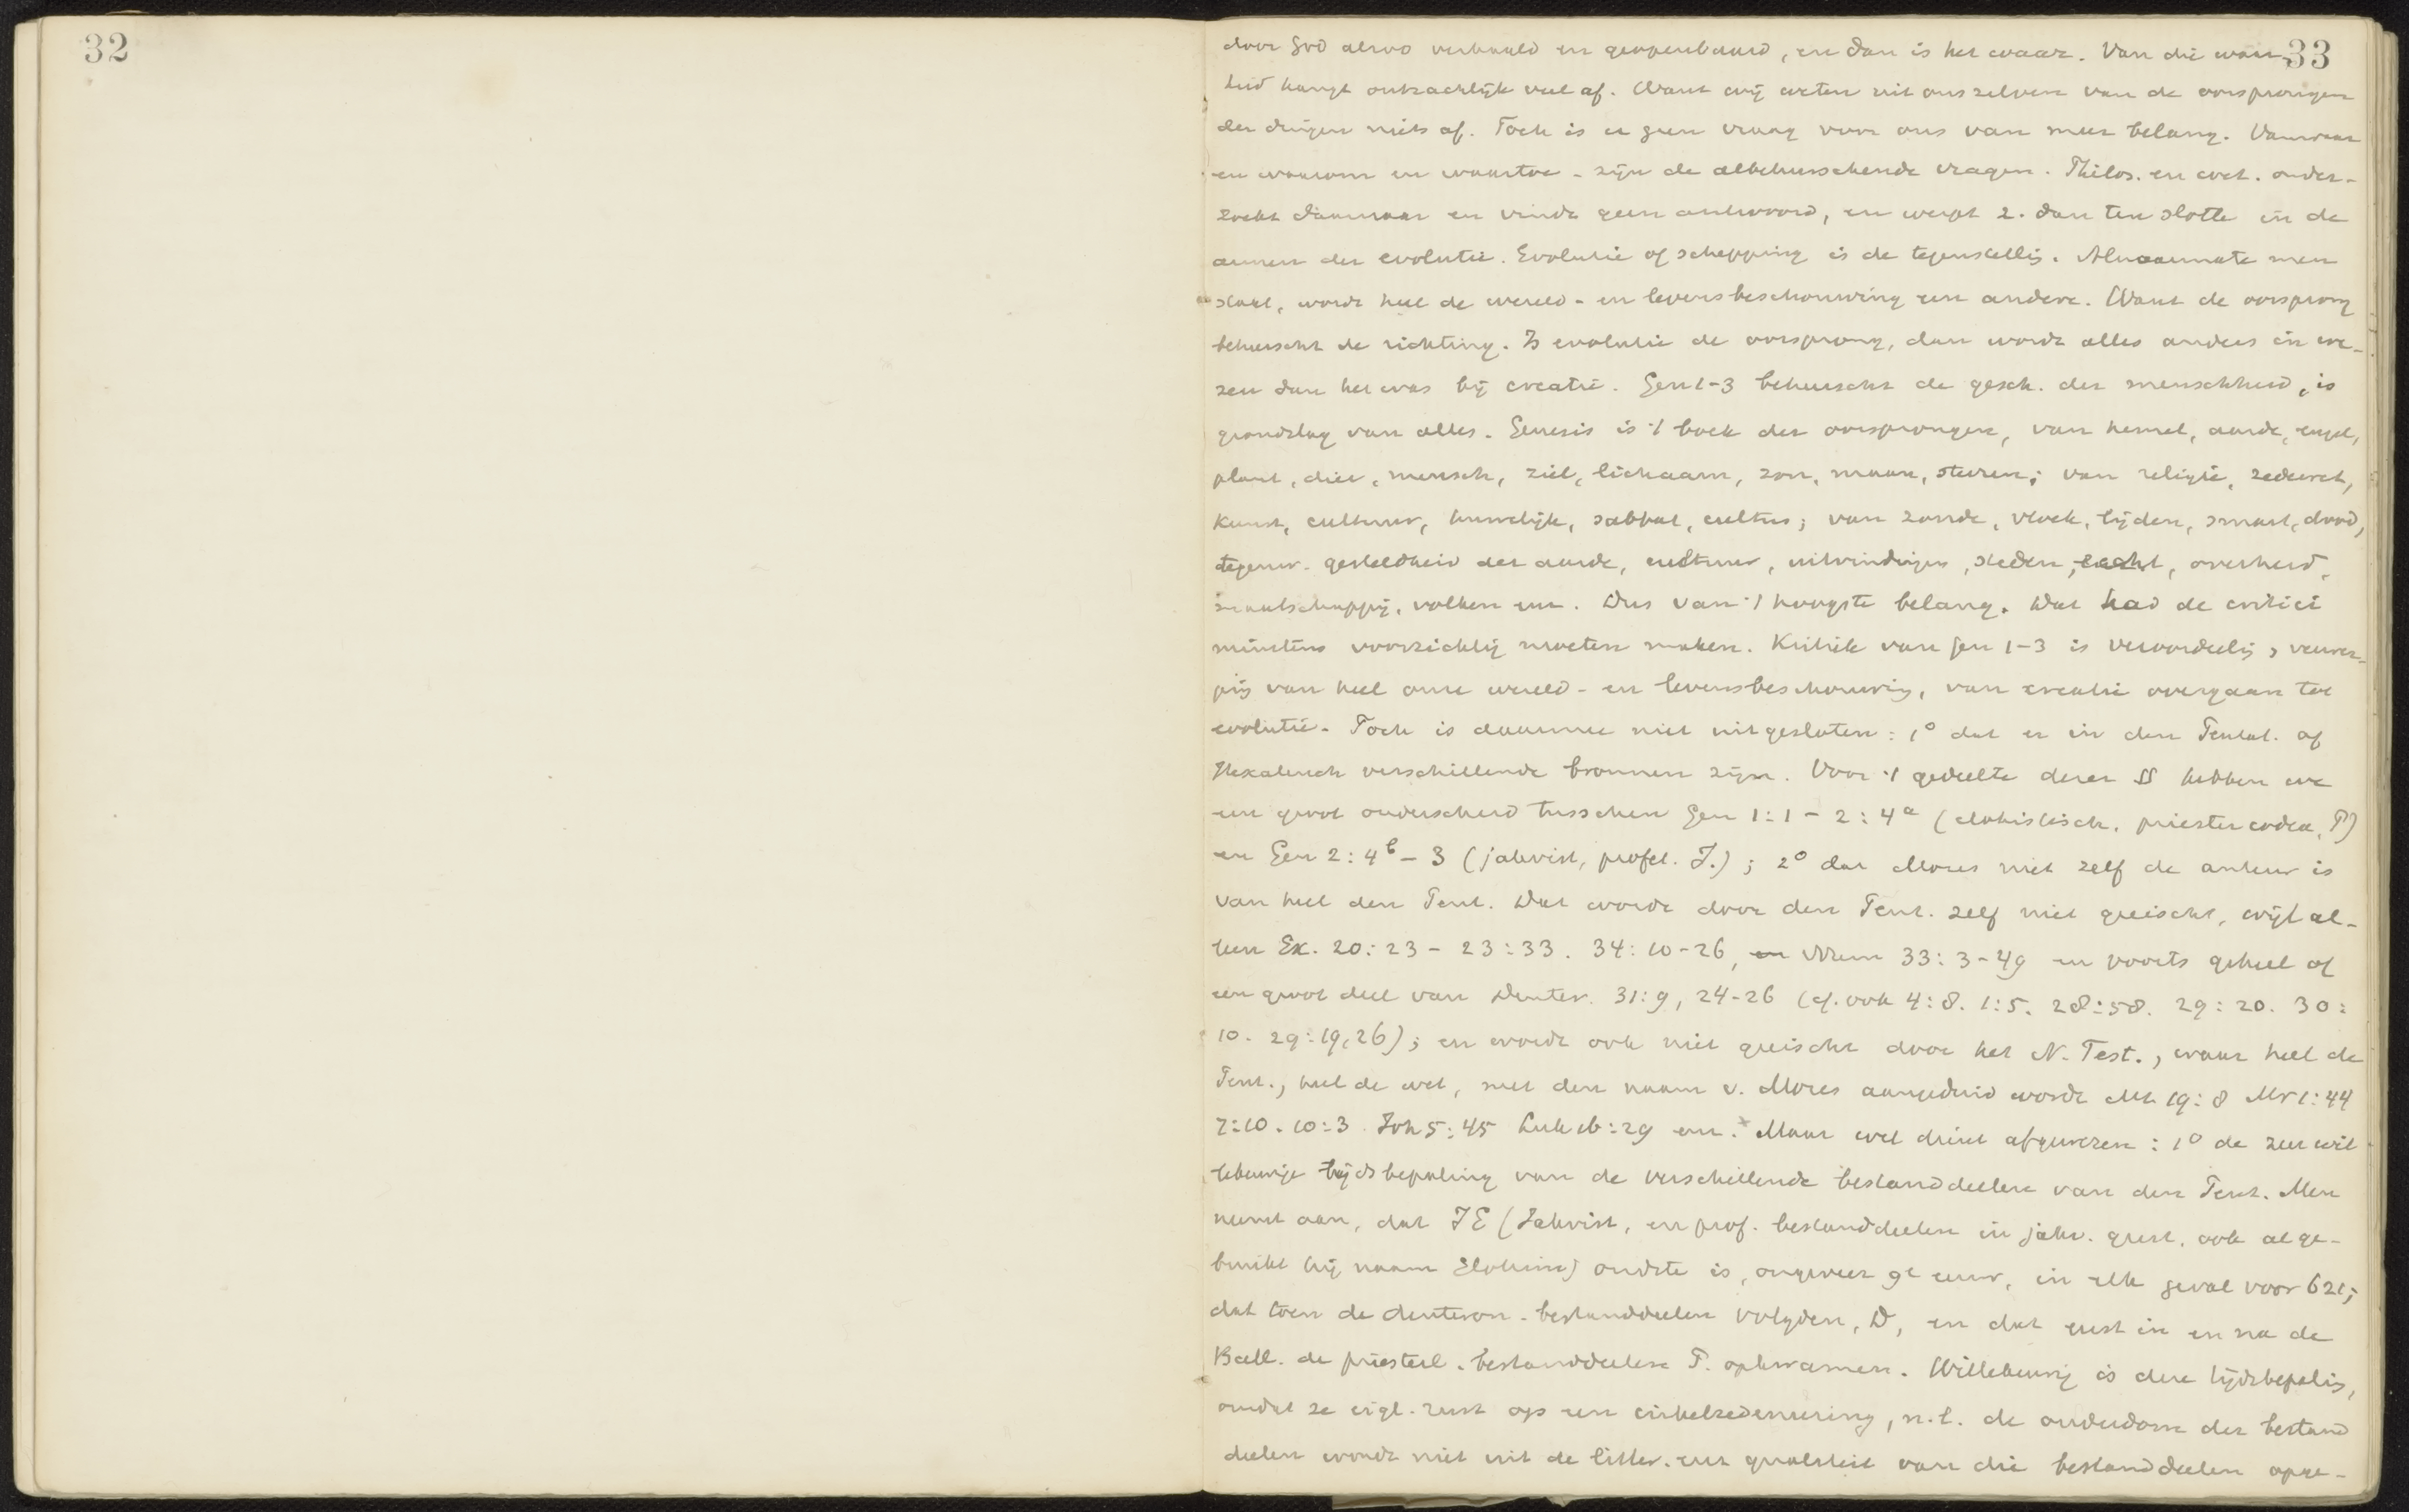 32
33
door God alzoo verhaald en geopenbaard, en dan is het waar. Van die waar-
heid hangt ontzachlijk veel af. Want wij weten uit ons zelven van de oorsprongen
der dingen niets af. Toch is er geen vraag voor ons van meer belang. Vanwaar
en waarom en waartoe - zijn de albeheerschende vragen. Philos. en wet. onder-
zoekt daarnaar en vindt geen antwoord, en werpt z. dan ten slotte in de
armen der evolutie. Evolutie of schepping is de tegenstellg. Alnaarmate men
kiest, wordt heel de wereld- en levensbeschouwing een andere. Want de oorsprong
beheerscht de richting. Is evolutie de oorsprong, dan wordt alles anders in we-
zen dan het was bij creatie. Gen 1-3 beheerscht de gesch. der menschheid, is
grondslag van alles. Genesis is 't boek der oorsprongen, van hemel, aarde, engel,
plant, dier, mensch, ziel, lichaam, zon, maan, sterren; van religie, zedewet,
kunst, cultuur, huwelijk, sabbat, cultus; van zonde, vloek, lijden, smart, dood,
tegenw. gesteldheid der aarde, cultuur, uitvindingen, steden, overheid,
maatschappij, volken enz. Dus van 't hoogste belang. Dat had de critici
minstens voorzichtig moeten maken. Kritiek van Gen 1-3 is veroordeelg, verwer-
pig van heel onze wereld- en levensbeschouwig, van creatie overgaan tot
evolutie. Toch is daarmee niet uitgesloten: 1° dat er in den Pentat. of
Hexateuch verschillende bronnen zijn. Voor 't gedeelte dezer §§ hebben we
een groot onderscheid tusschen Gen 1:1 - 2:4a (elohistisch, priestercodex, P)
en Gen 2:4b - 3 (jahvist, profet. J.); 2° dat Mozes niet zelf de auteur is
van heel den Pent. Dat wordt door den Pent. zelf niet geeischt, wijl al-
leen Ex. 20:23 - 23:33. 34:10-26, en Num 33:3-49 en voorts geheel of
een groot deel van Deuter. 31:9, 24-26 (cf. ook 4:8. 1:5. 28:58. 29:20. 30:
10. 29:19,26); en wordt ook niet geeischt door het N. Test., waar heel de
Pent., heel de wet, met den naam v. Mozes aangeduid wordt Mt 19:8 Mr 1:44
7:10. 10:3. Joh 5:45 Luk 16:29 enz. x Maar wel dient afgewezen: 1° de zeer wil
lekeurige tijdsbepaling van de verschillende bestanddeelen van den Pent. Men
neemt aan, dat JE (Jahvist, en prof. bestanddeelen in jahv. geest, ook al ge-
bruikt hij naam Elohim) oudste is, ongeveer 9e eeuw, in elk geval voor 621;
dat toen de deuteron. bestanddeelen volgden, D, en dat eerst in en na de
Ball. de priesterl. bestanddeelen P. opkwamen. Willekeurig is deze tijdsbepalig,
omdat ze eigl. rust op een cirkelredeneering, n.l. de ouderdom der bestand
deelen wordt niet uit de litter. van die bestanddeelen opge-